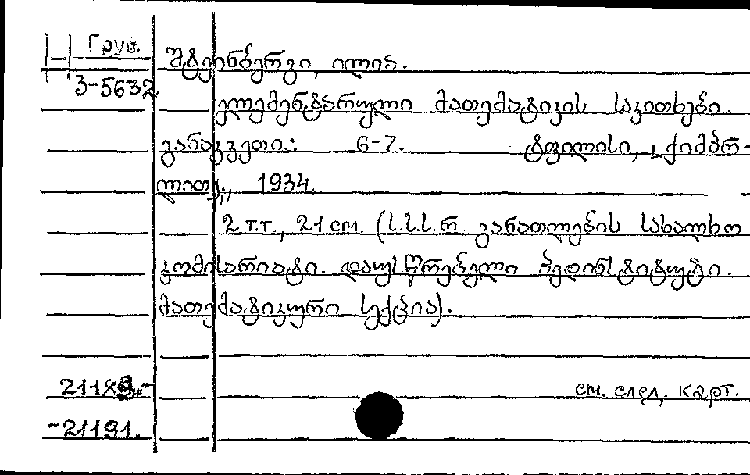 Груз.
3-5632
შტეინბერგი, ილია.
ელემენტარული მათემატიკის საკითხები.
განაკვეთი: 6-7. ტფილისი, „ქიმპრ-
ლით“, 1934.
2 т.т., 21 см. (ს.ს.ს.რ. განათლების სახალხო
კომისარიატი. დაუსწრებელი პედინსტიტუტი.
მათემატიკური სექცია).
см. след. карт.
-21191.